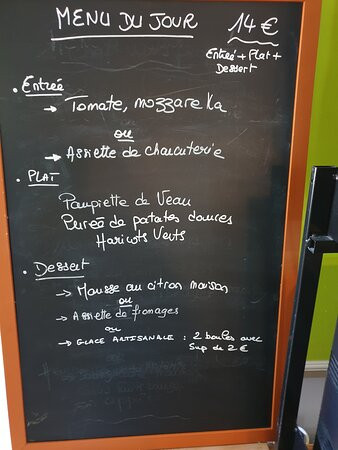 MENU DU JOUR
14 €
Entrée + Plat +
Dessert
. Entrée
→ Tomate, mozzarella
ou
→ Assiette de charcuterie
. PLAT
Paupiette de Veau
Pureé de patates douces
Haricots Verts
. Dessert
→ Mousse au citron maison
ou
→ Assiette de fromages
ou
→ GLACE ARTISANALE : 2 boules avec
Sup de 2 €